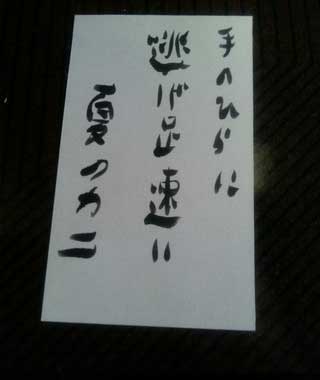 手のひらに
逃げ足速い
夏のカニ